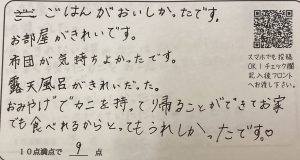 ごはんがおいしかったです。
お部屋がきれいです。
布団が気持ちよかったです。
露天風呂がきれいだった。
おみやげでカニを持って帰ることができてお家
でも食べれるからとってもうれしかったです。♡
スマホでも投稿
OK！チェック欄
記入後フロント
へお渡し下さい。
10点満点で 9 点